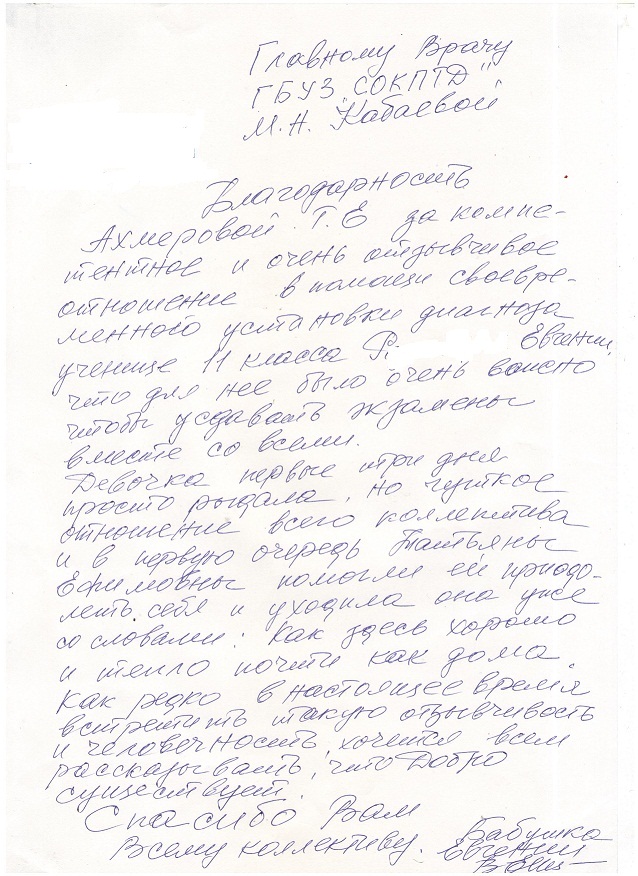 Главному Врачу
ГБУЗ "СОКПТД"
М.Н. Кабаевой
Благодарность
Ахмеровой Т.Е за компе-
тентное и очень отзывчивое
отношение в помощи своевре-
менного установки диагноза
ученице 11 класса Р. Евгении,
что для нее было очень важно
чтобы усдавать экзамены
вместе со всеми.
Девочка первые три дня
просто рыдала, но чуткое
отношение всего коллектива
и в первую очередь Татьяны
Ефимовны помогли ей приодо-
леть себя и уходила она уже
со словами: Как здесь хорошо
и тепло почти как дома.
Как редко в настоящее время
встретить такую отзывчивость
и человечность, хочется всем
рассказывать, что Добро
существует.
Спасибо Вам
Всему коллективу. Бабушка
Евгении